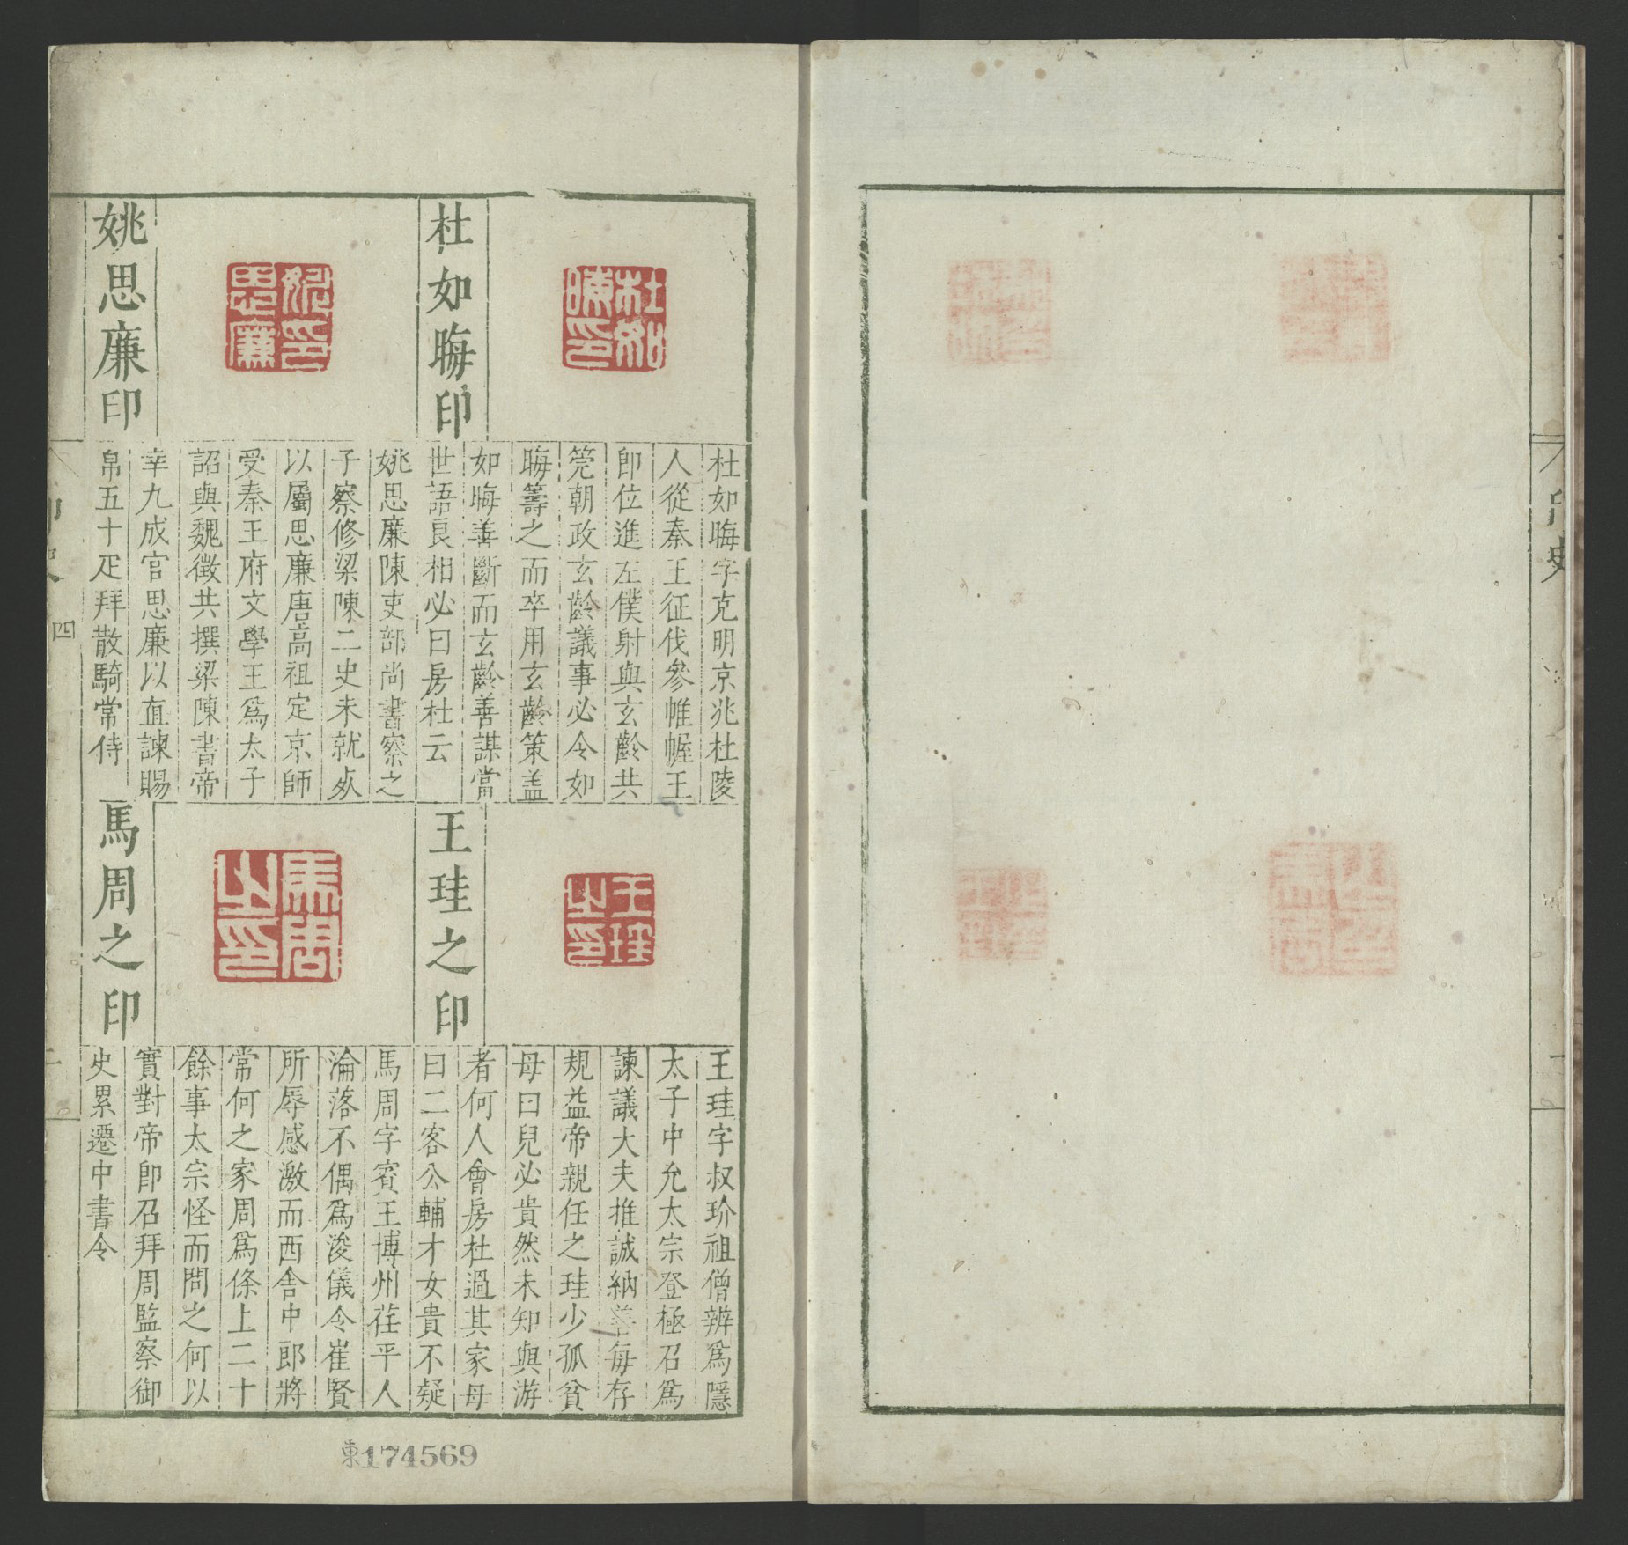 杜如晦印
杜如晦字克明京兆杜陵
人從秦王征伐參帷幄王
即位進左僕射與玄齡共
筦朝政玄齡議事必令如
晦籌之而卒用玄齡策盖
如晦善斷而玄齡善謀當
世語良相必曰房杜云
姚思廉印
姚思廉陳吏部尚書察之
子察修梁陳二史未就㱕
以屬思廉唐高祖定京師
受秦王府文學王爲太子
詔與魏徵共撰梁陳書帝
幸九成宮思廉以直諫賜
帛五十疋拜散騎常侍
王珪之印
王珪字叔玠祖僧辨爲隱
太子中允太宗登極召爲
諫議大夫推誠納善每存
規益帝親任之珪少孤貧
母曰兒必貴然未知與游
者何人會房杜過其家母
曰二客公輔才女貴不疑
馬周之印
馬周字賓王博州茌平人
淪落不偶爲浚儀令崔賢
所辱感激而西舍中郎將
常何之家周爲條上二十
餘事太宗怪而問之何以
實對帝即召拜周監察御
史累遷中書令
杜如晦印
姚思廉印
王珪之印
馬周之印
印史
四
東174569